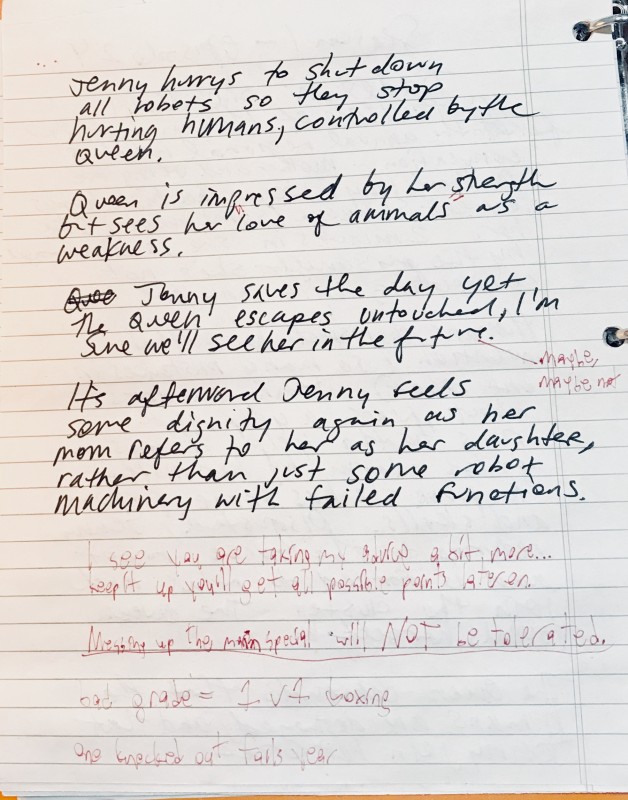 Jenny hurrys to shut down
all robots so they stop
hurting humans, controlled by the
Queen.
Queen is impressed by her strength
but sees her love of animals as a
weakness.
Jenny saves the day yet
the Queen escapes untouched, I'm
sure we'll see her in the future.
maybe,
maybe not
It's afterward Jenny feels
some dignity again as her
mom refers to her as her daughter,
rather than just some robot
machinery with failed functions.
I see you are taking my advice a bit more...
keep it up you'll get all possible points later on.
Messing up the main special will NOT be tolerated.
bad grade = 1 v 1 boxing
one knocked out fails year